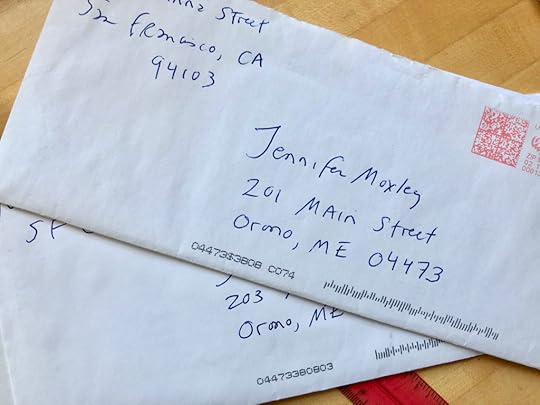 Street
San Francisco, CA
94103
Jennifer Moxley
201 Main Street
Orono, ME 04473
04473$3808 C074
203
Orono, ME
04473380803